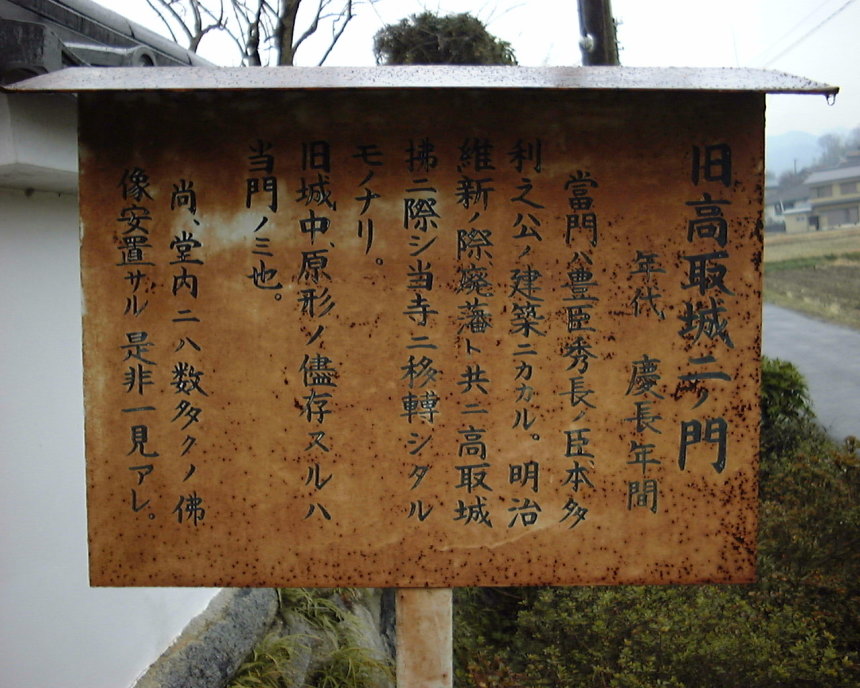 旧高取城二ノ門
年代 慶長年間
當門ハ豊臣秀長ノ臣、本多
利之公ノ建築ニカカル。明治
維新ノ際、廃藩ト共ニ高取城
拂ニ際シ当寺ニ移轉シタル
モノナリ。
旧城中、原形ノ儘存スルハ
当門ノミ也。
尚、堂内ニハ数多クノ佛
像安置サル 是非一見アレ。